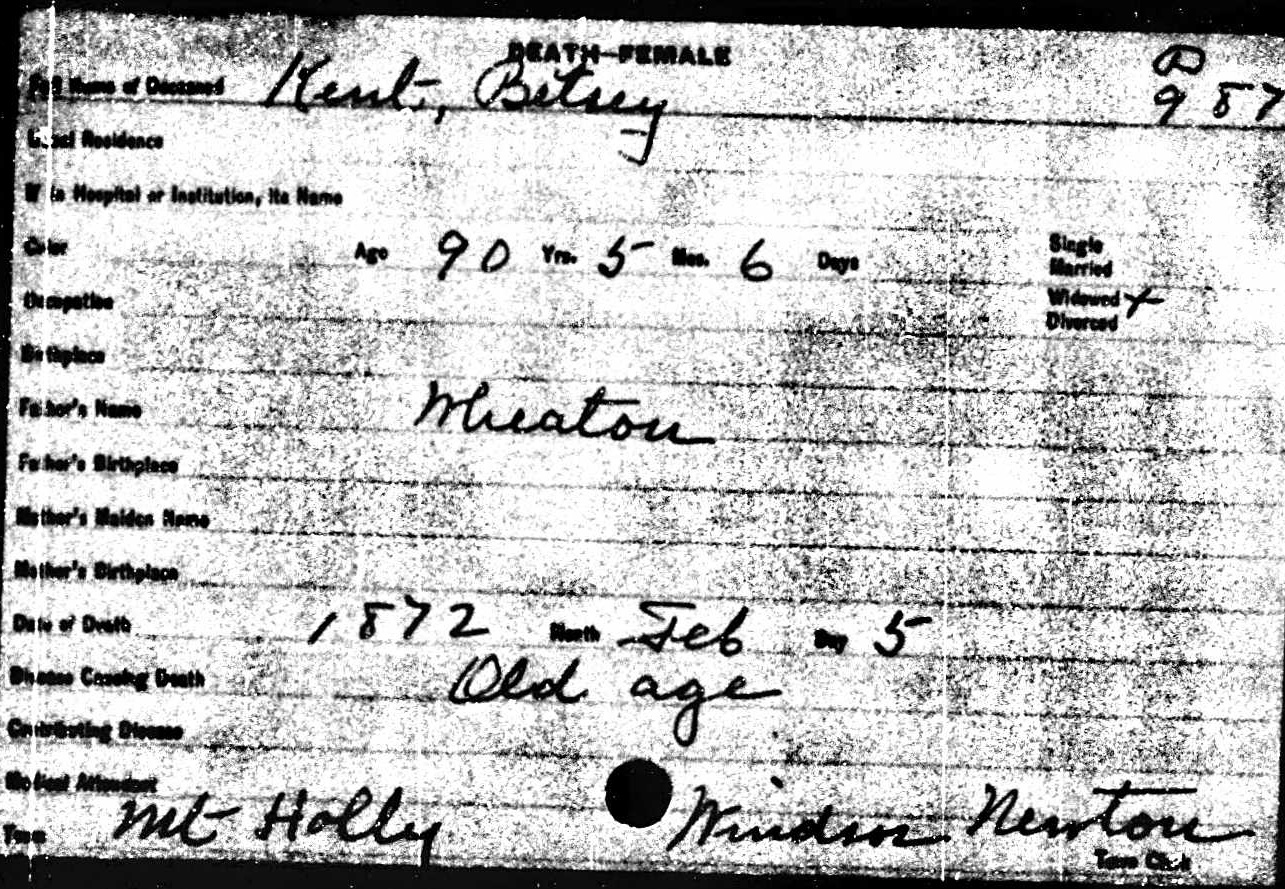 DEATH—FEMALE
D
Full Name of Deceased Kent, Betsey 9 87
Usual Residence
If in Hospital or Institution, its Name
Color Age 90 Yrs. 5 Mos. 6 Days Single
Married
Occupation Widowed x
Divorced
Birthplace
Father's Name Wheaton
Father's Birthplace
Mother's Maiden Name
Mother's Birthplace
Date of Death 1872 Month Feb Day 5
Disease Causing Death Old age
Contributing Disease
Medical Attendant
Town Mt Holly Windsor Newton
Town Clerk